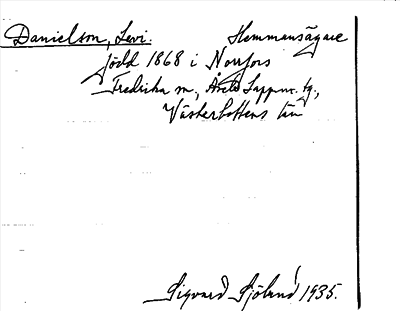 Danielson, Levi. Hemmansägare
född 1868 i Norrfors
Fredrika sn, Åsele Lappm. tg.,
Västerbottens län
Sigvard Sjölund 1935.